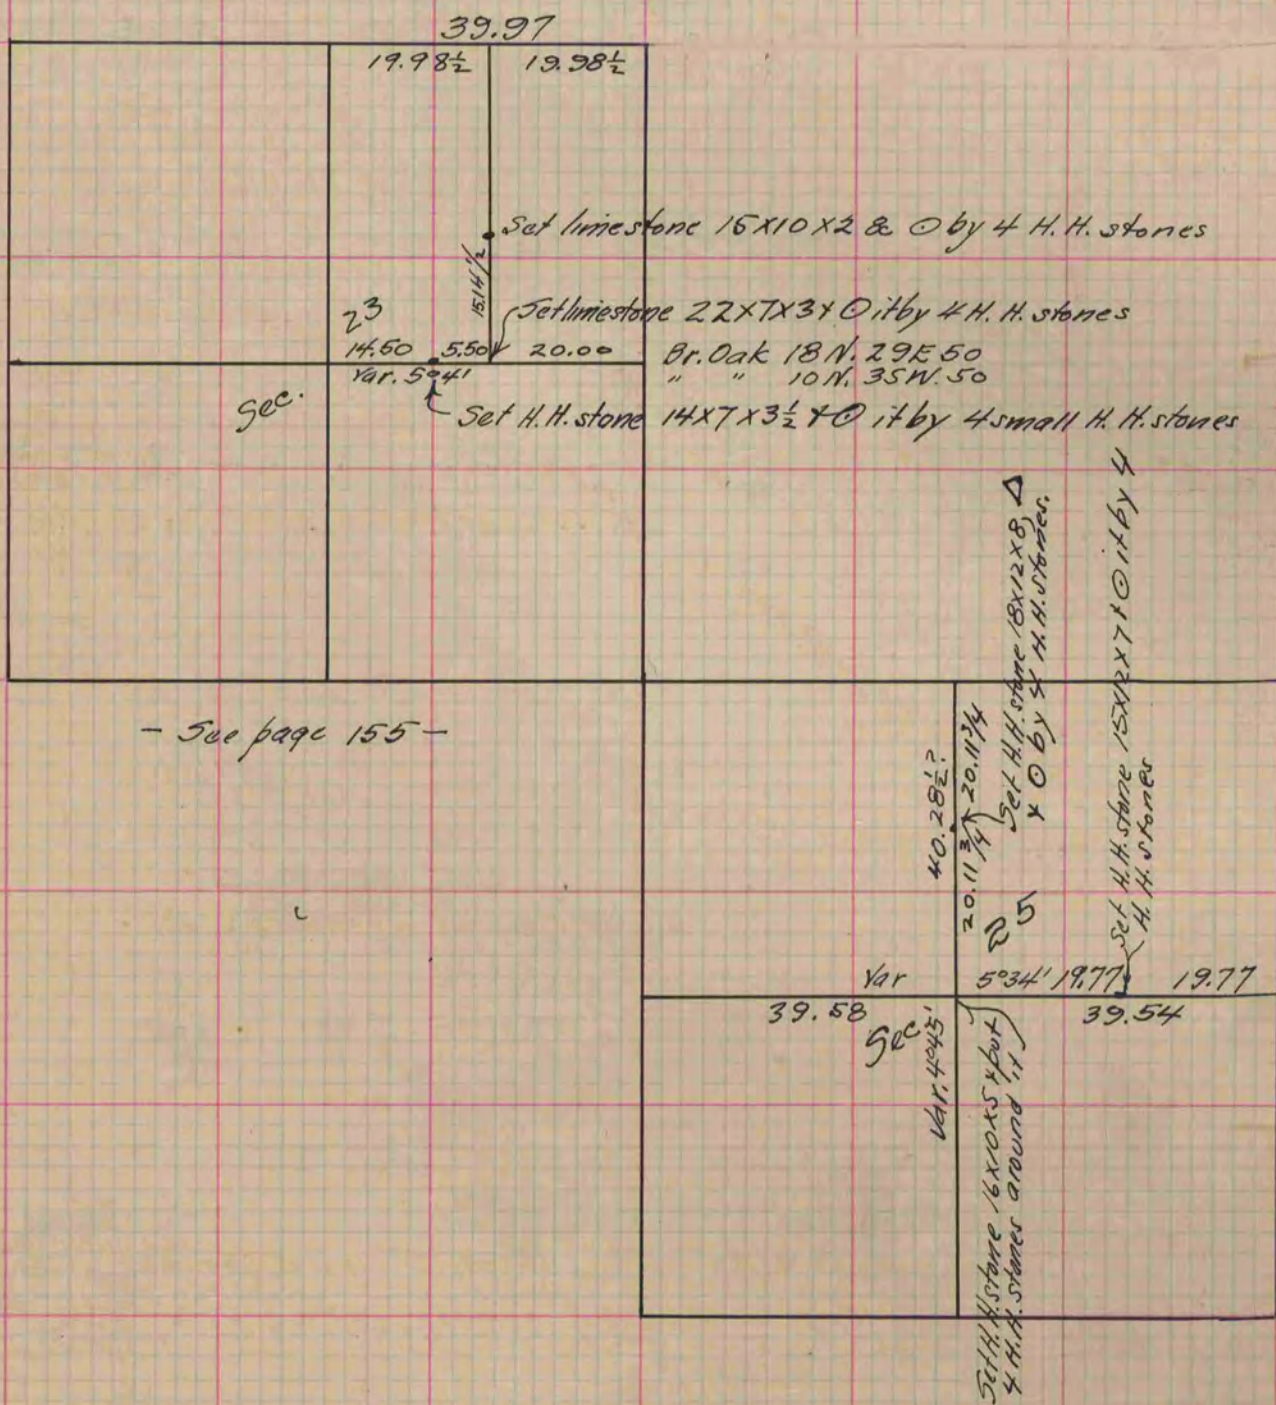 39.97
19.98½ 19.98½
Set limestone 15X10X2 & ⊙ by 4 H.H. stones
15.14½
Set limestone 22X7X3 & ⊙ it by 4 H.H. stones
23
14.50 5.50 20.00
Br. Oak 18 N. 29 E 50
" " 10 N. 35 W. 50
Var. 5°41'
Sec.
Set H.H. stone 14X7X3½ & ⊙ it by 4 small H.H. stones
- See page 155 -
40.28½?
20.11¾ 20.11¾
Set H.H. stone 18X12X8, △
& ⊙ by 4 H.H. stones.
Set H.H. stone 15X12X7 & ⊙ it by 4
H.H. stones
25
Var 5°34' 19.77 19.77
39.58 39.54
Sec
Var. 4°45'
Set H.H. stone 16X10X5 & put
4 H.H. stones around it